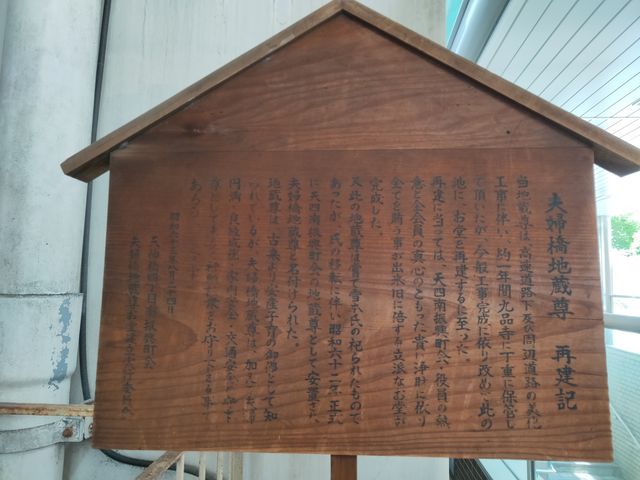 夫婦橋地蔵尊　再建記
当地蔵尊は、高速道路下及び周辺道路の美化
工事に伴い、約一年間九品寺二丁重に保管し
て頂いたが、今般工事完成に依り改めて此の
地に、お堂を再建するに至った。
再建に当っては、天四南振興町会・役員の総
意と会員の真心のともった貴い浄財に依り
全てを賄う事が出来旧に倍する立派なお堂が
完成した。
又此の地蔵尊は曽て雪本氏の祀られたもので
あったが、氏の移転に伴い昭和六十二年、正式
に天四南振興町会の地蔵尊として安置され、
夫婦橋地蔵尊と名付けられた。
地蔵尊は、古来より安産子育の御佛として知
られているが、夫婦橋地蔵尊は、加えて夫婦
円満・良縁成就・家内安全・交通安全の
お守り下さる事で
あろう
昭和六十三年八月二十四日
天神橋四丁目南振興町会
夫婦橋地蔵尊お堂建立委員会